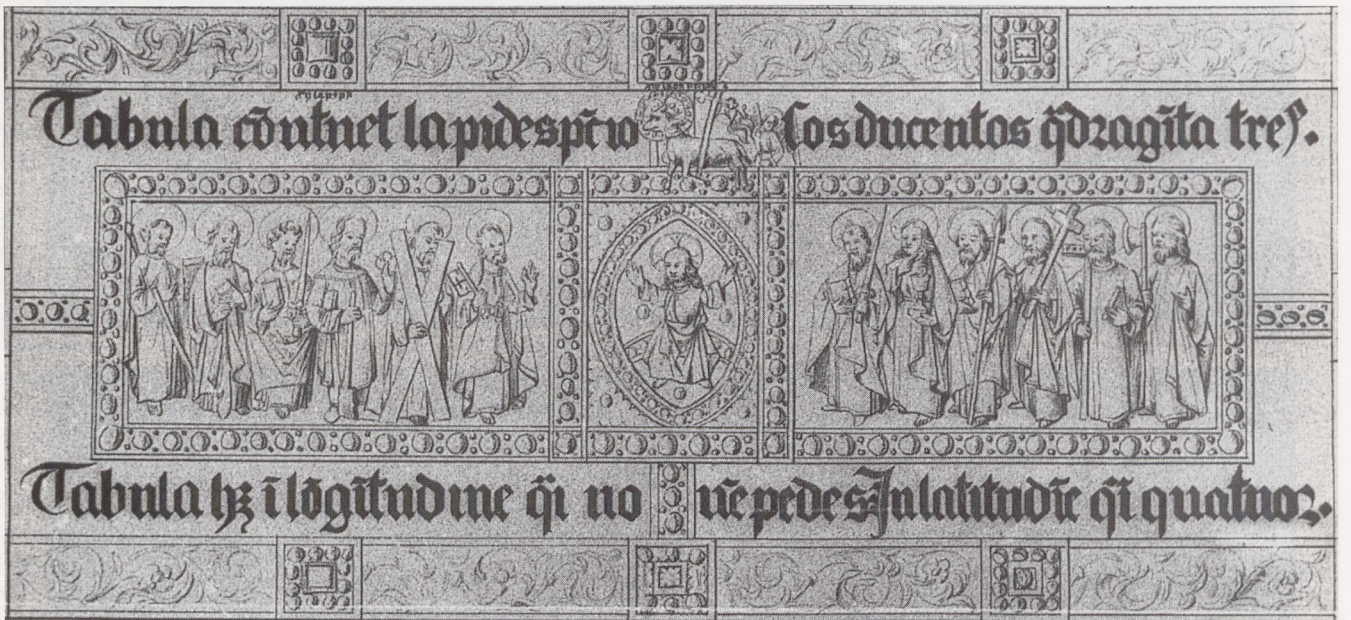 Tabula cōntinet lapides p̄cio sos ducentos q̄dragīta tres.
Tabula hꝫ ī lōgitudine q̄i no uē pedes Jn latitudīe q̄i quatuoꝛ.